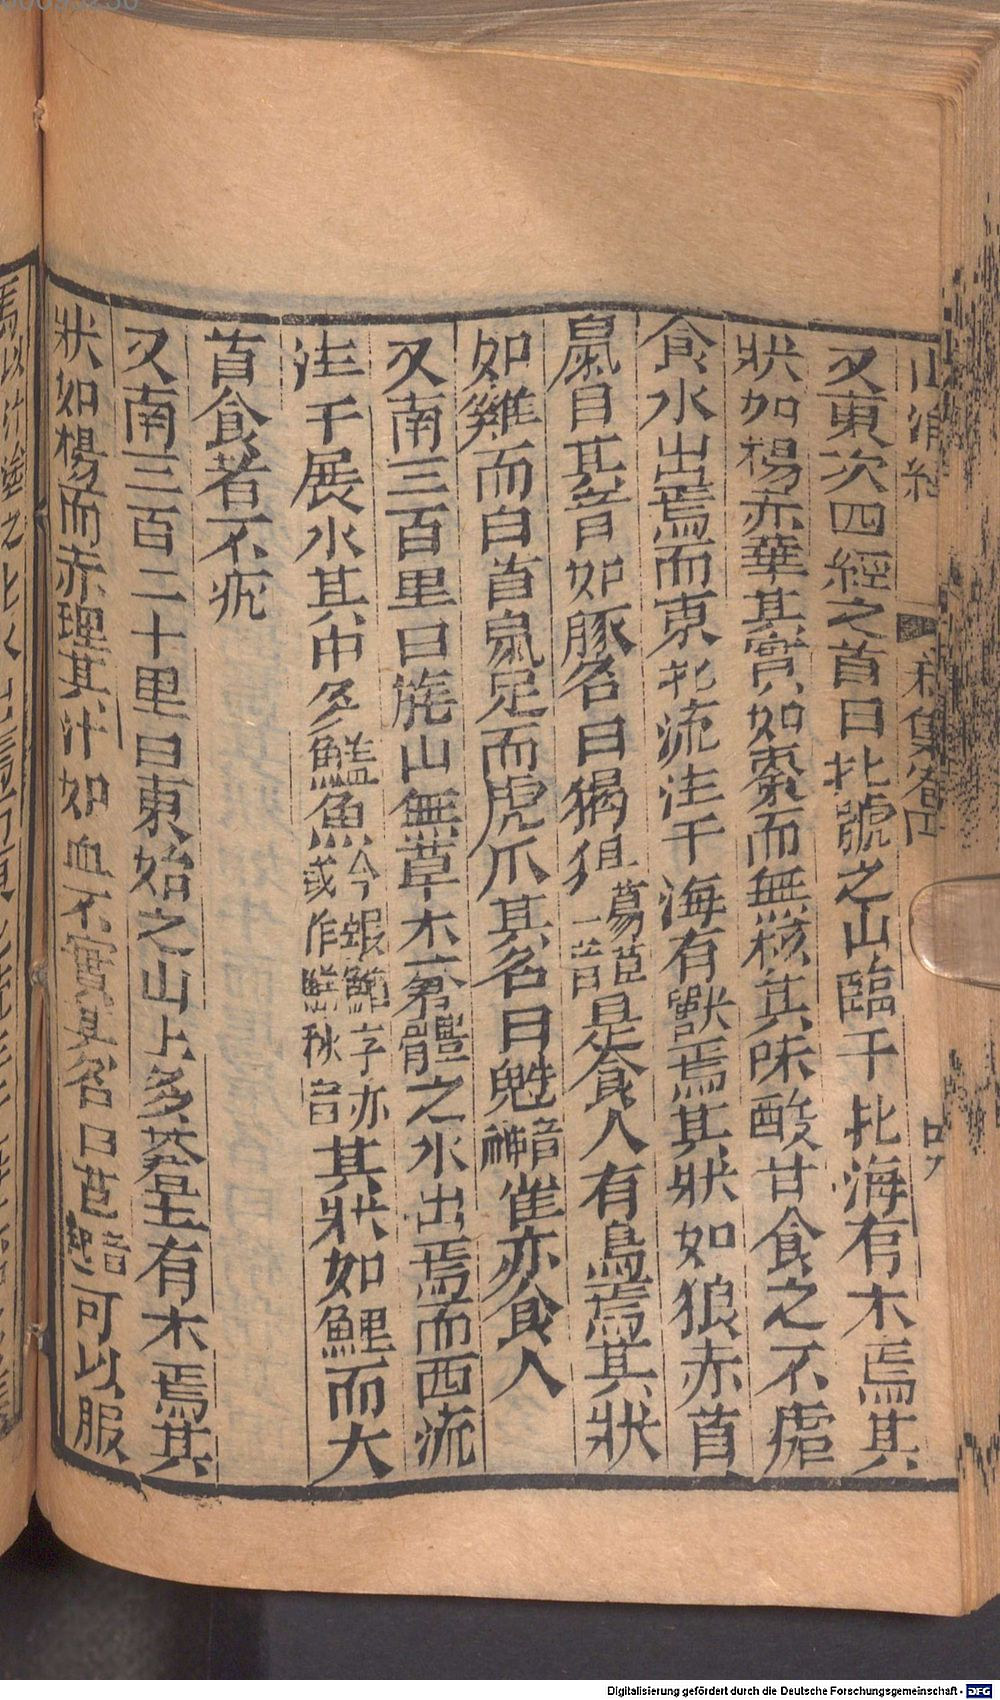 又東次四經之首曰北號之山臨于北海有木焉其
狀如楊赤華其實如棗而無核其味酸甘食之不瘧
食水出焉而東北流注于海有獸焉其狀如狼赤首
鼠目其音如豚名曰猲狙葛苴一音是食人有鳥焉其狀
如雞而白首鼠足而虎爪其名曰鬿音祈雀亦食人
又南三百里曰旄山無草木蒼體之水出焉而西流
注于展水其中多鱃魚今蝦鰌字亦或作鱃秋音其狀如鯉而大
首食者不疣
又南三百二十里曰東始之山上多蒼玉有木焉其
狀如楊而赤理其汁如血不實其名曰芑音起可以服
Digitalisierung gefördert durch die Deutsche Forschungsgemeinschaft - DFG